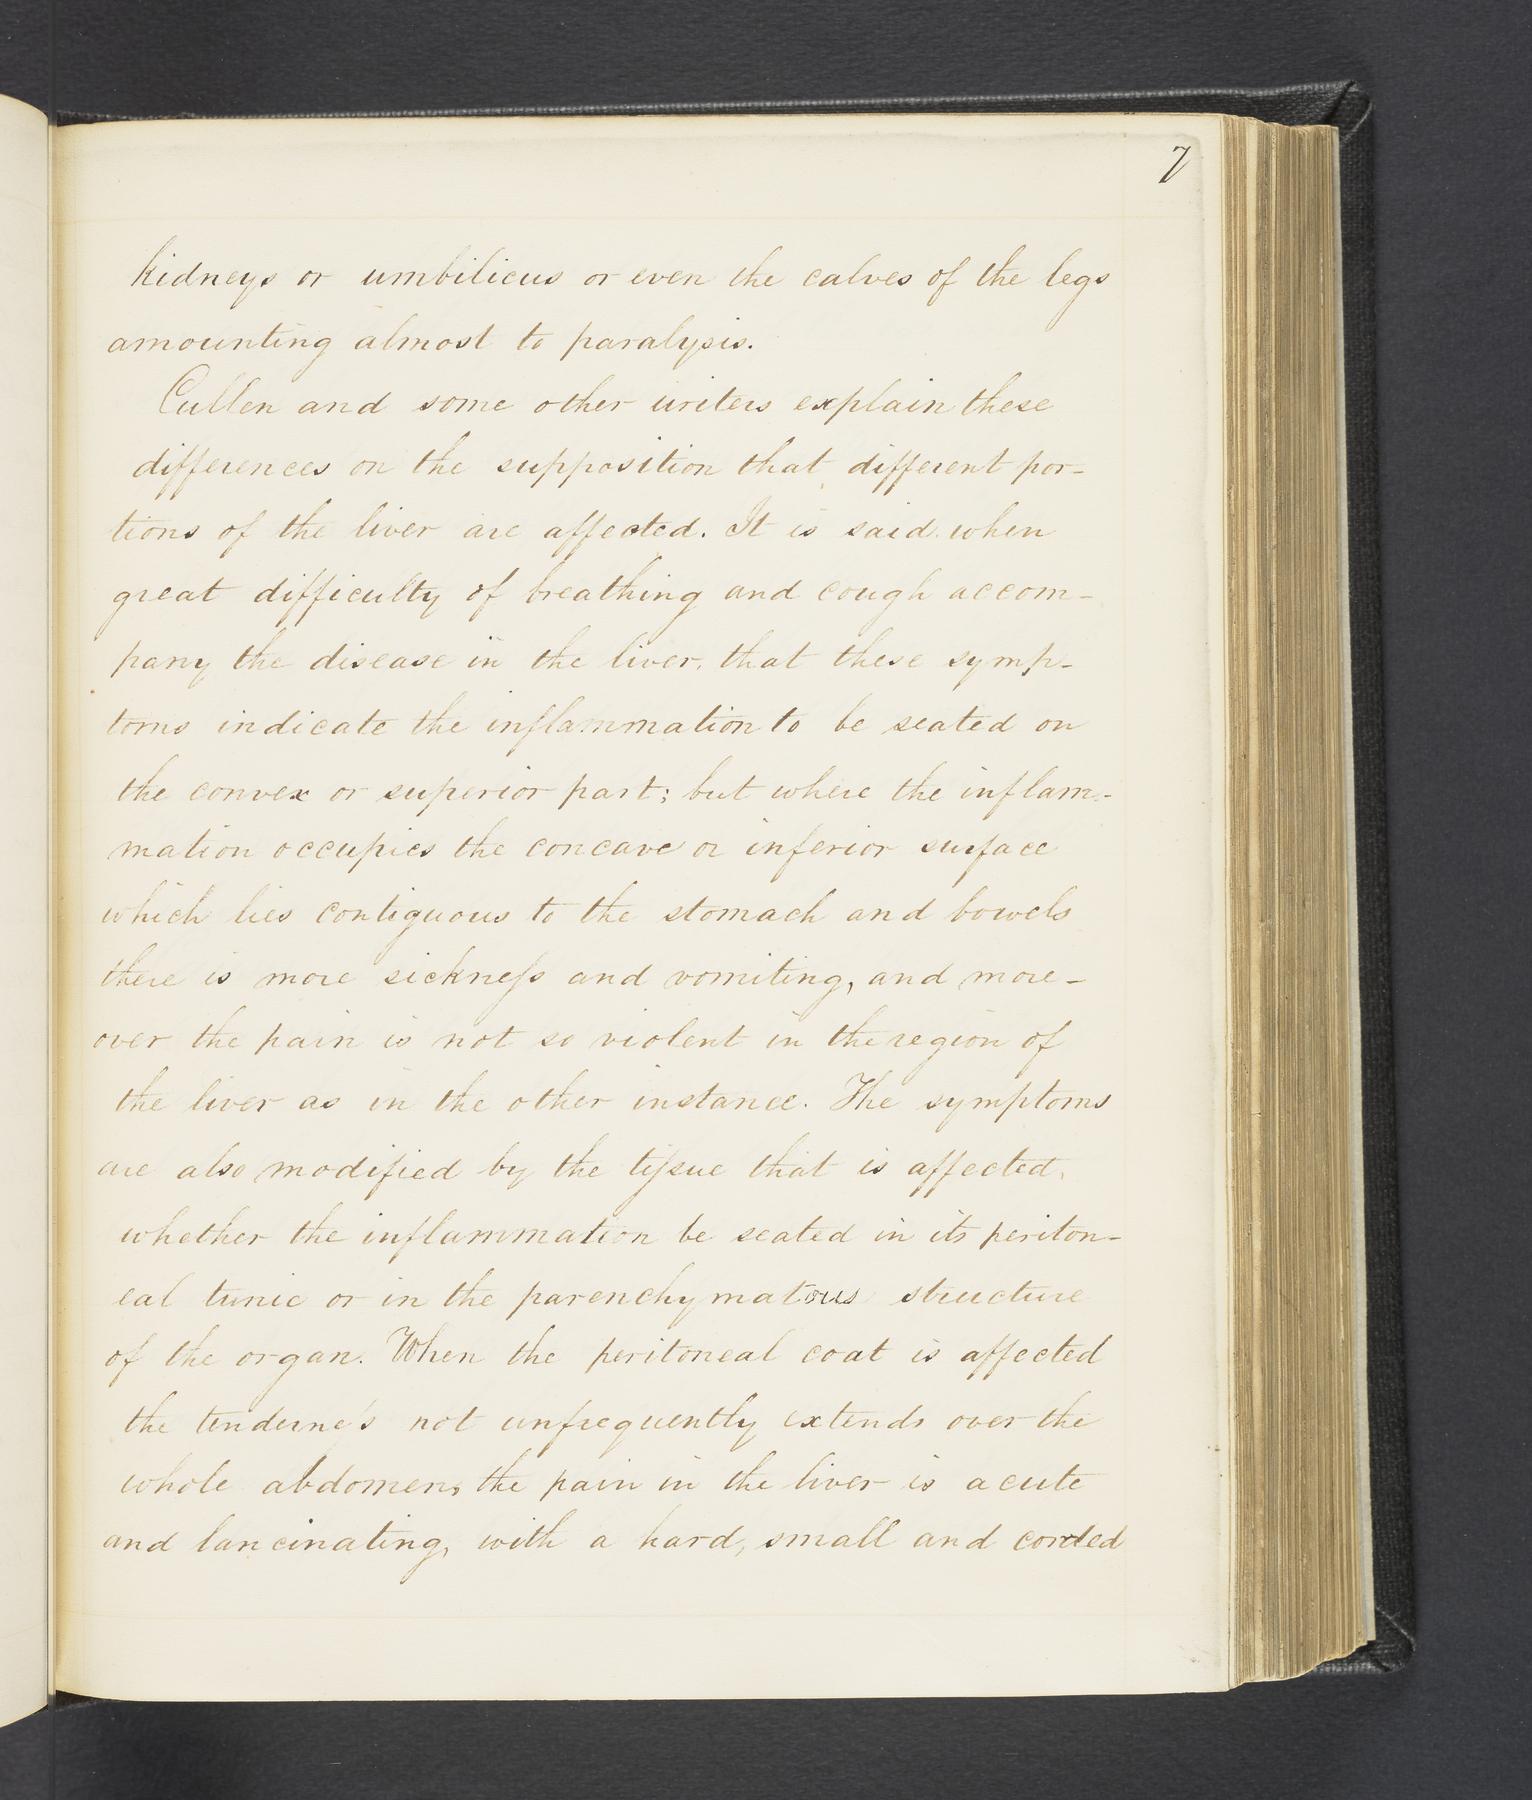 7
kidneys or umbilicus or even the calves of the legs
amounting almost to paralysis.
Cullen and some other writers explain these
differences on the supposition that different por-
tions of the liver are affected. It is said when
great difficulty of breathing and cough accom-
pany the disease in the liver, that these symp-
toms indicate the inflammation to be seated on
the convex or superior part; but where the inflam-
mation occupies the concave or inferior surface
which lies contiguous to the stomach and bowels
there is more sickneſs and vomiting, and more-
over the pain is not so violent in the region of
the liver as in the other instance. The symptoms
are also modified by the tiſsue that is affected,
whether the inflammation be seated in its periton-
eal tunic or in the parenchymatous structure
of the organ. When the peritoneal coat is affected
the tenderneſs not unfrequently extends over the
whole abdomen, the pain in the liver is acute
and lancinating, with a hard, small and corded